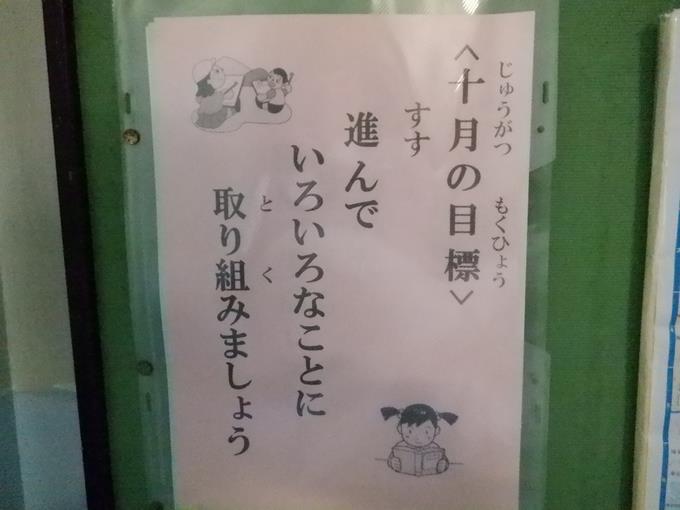 〈十月の目標〉
じゅうがつ もくひょう
進んで
すす
いろいろなことに
取り組みましょう
と く